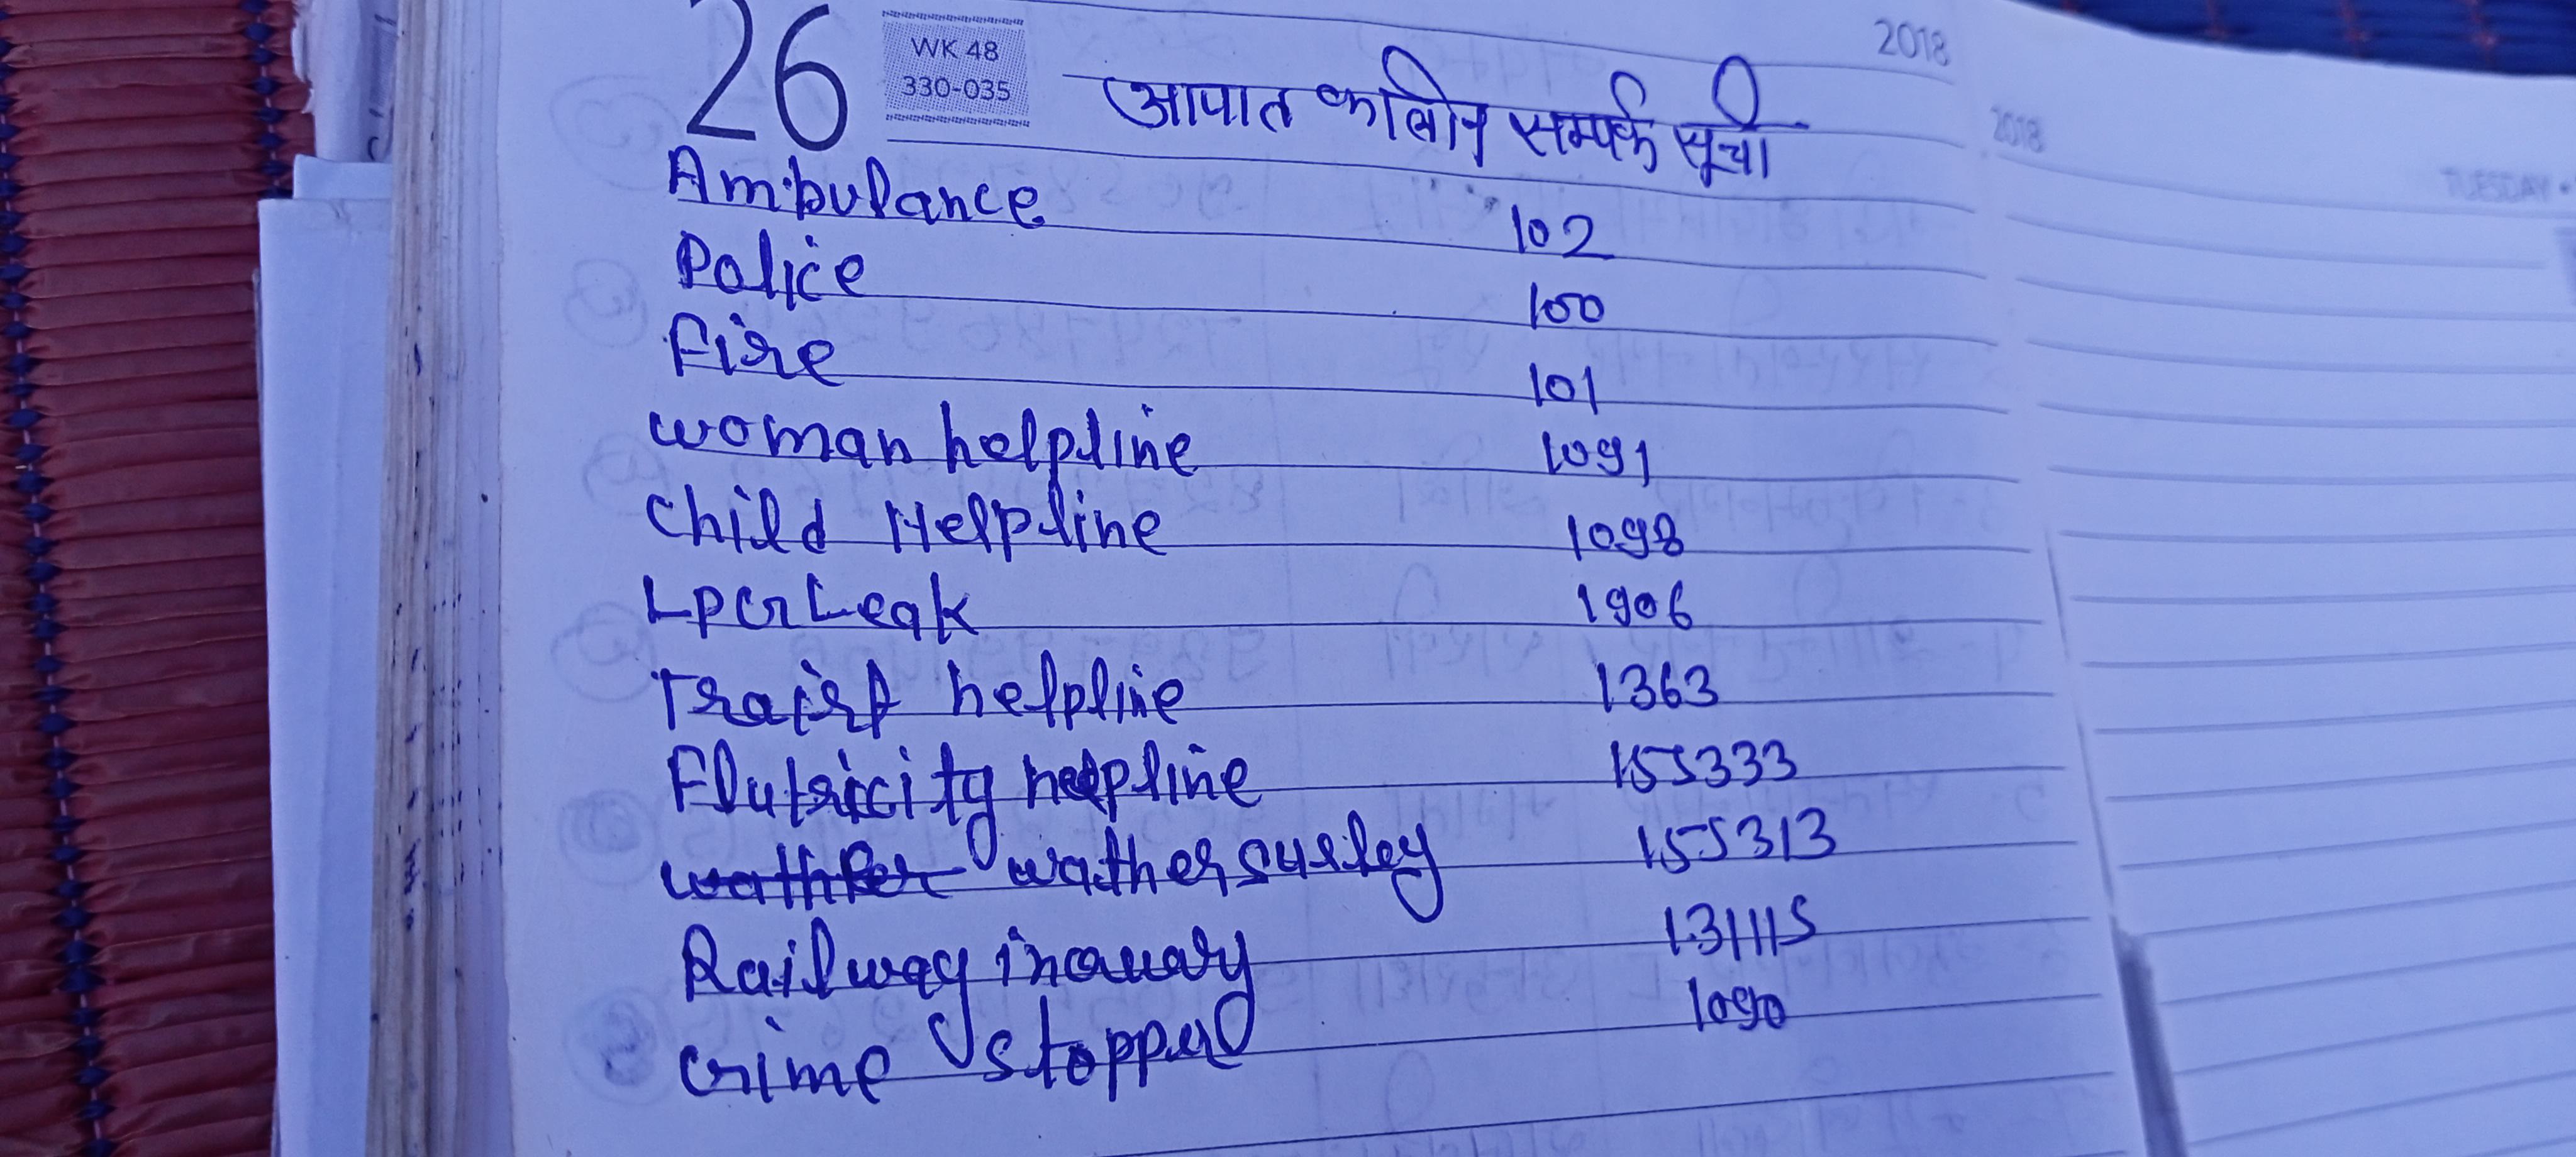 2018
26 WK 48
330-035
आपात कालीन सम्पर्क सूची
2018
TUESDAY
Ambulance 102
Police 100
Fire 101
woman helpline 1091
Child Helpline 1098
LPG Leak 1906
helpline 1363
helpline 155333
wather 155313
Railway 131115
crime stopper 1090